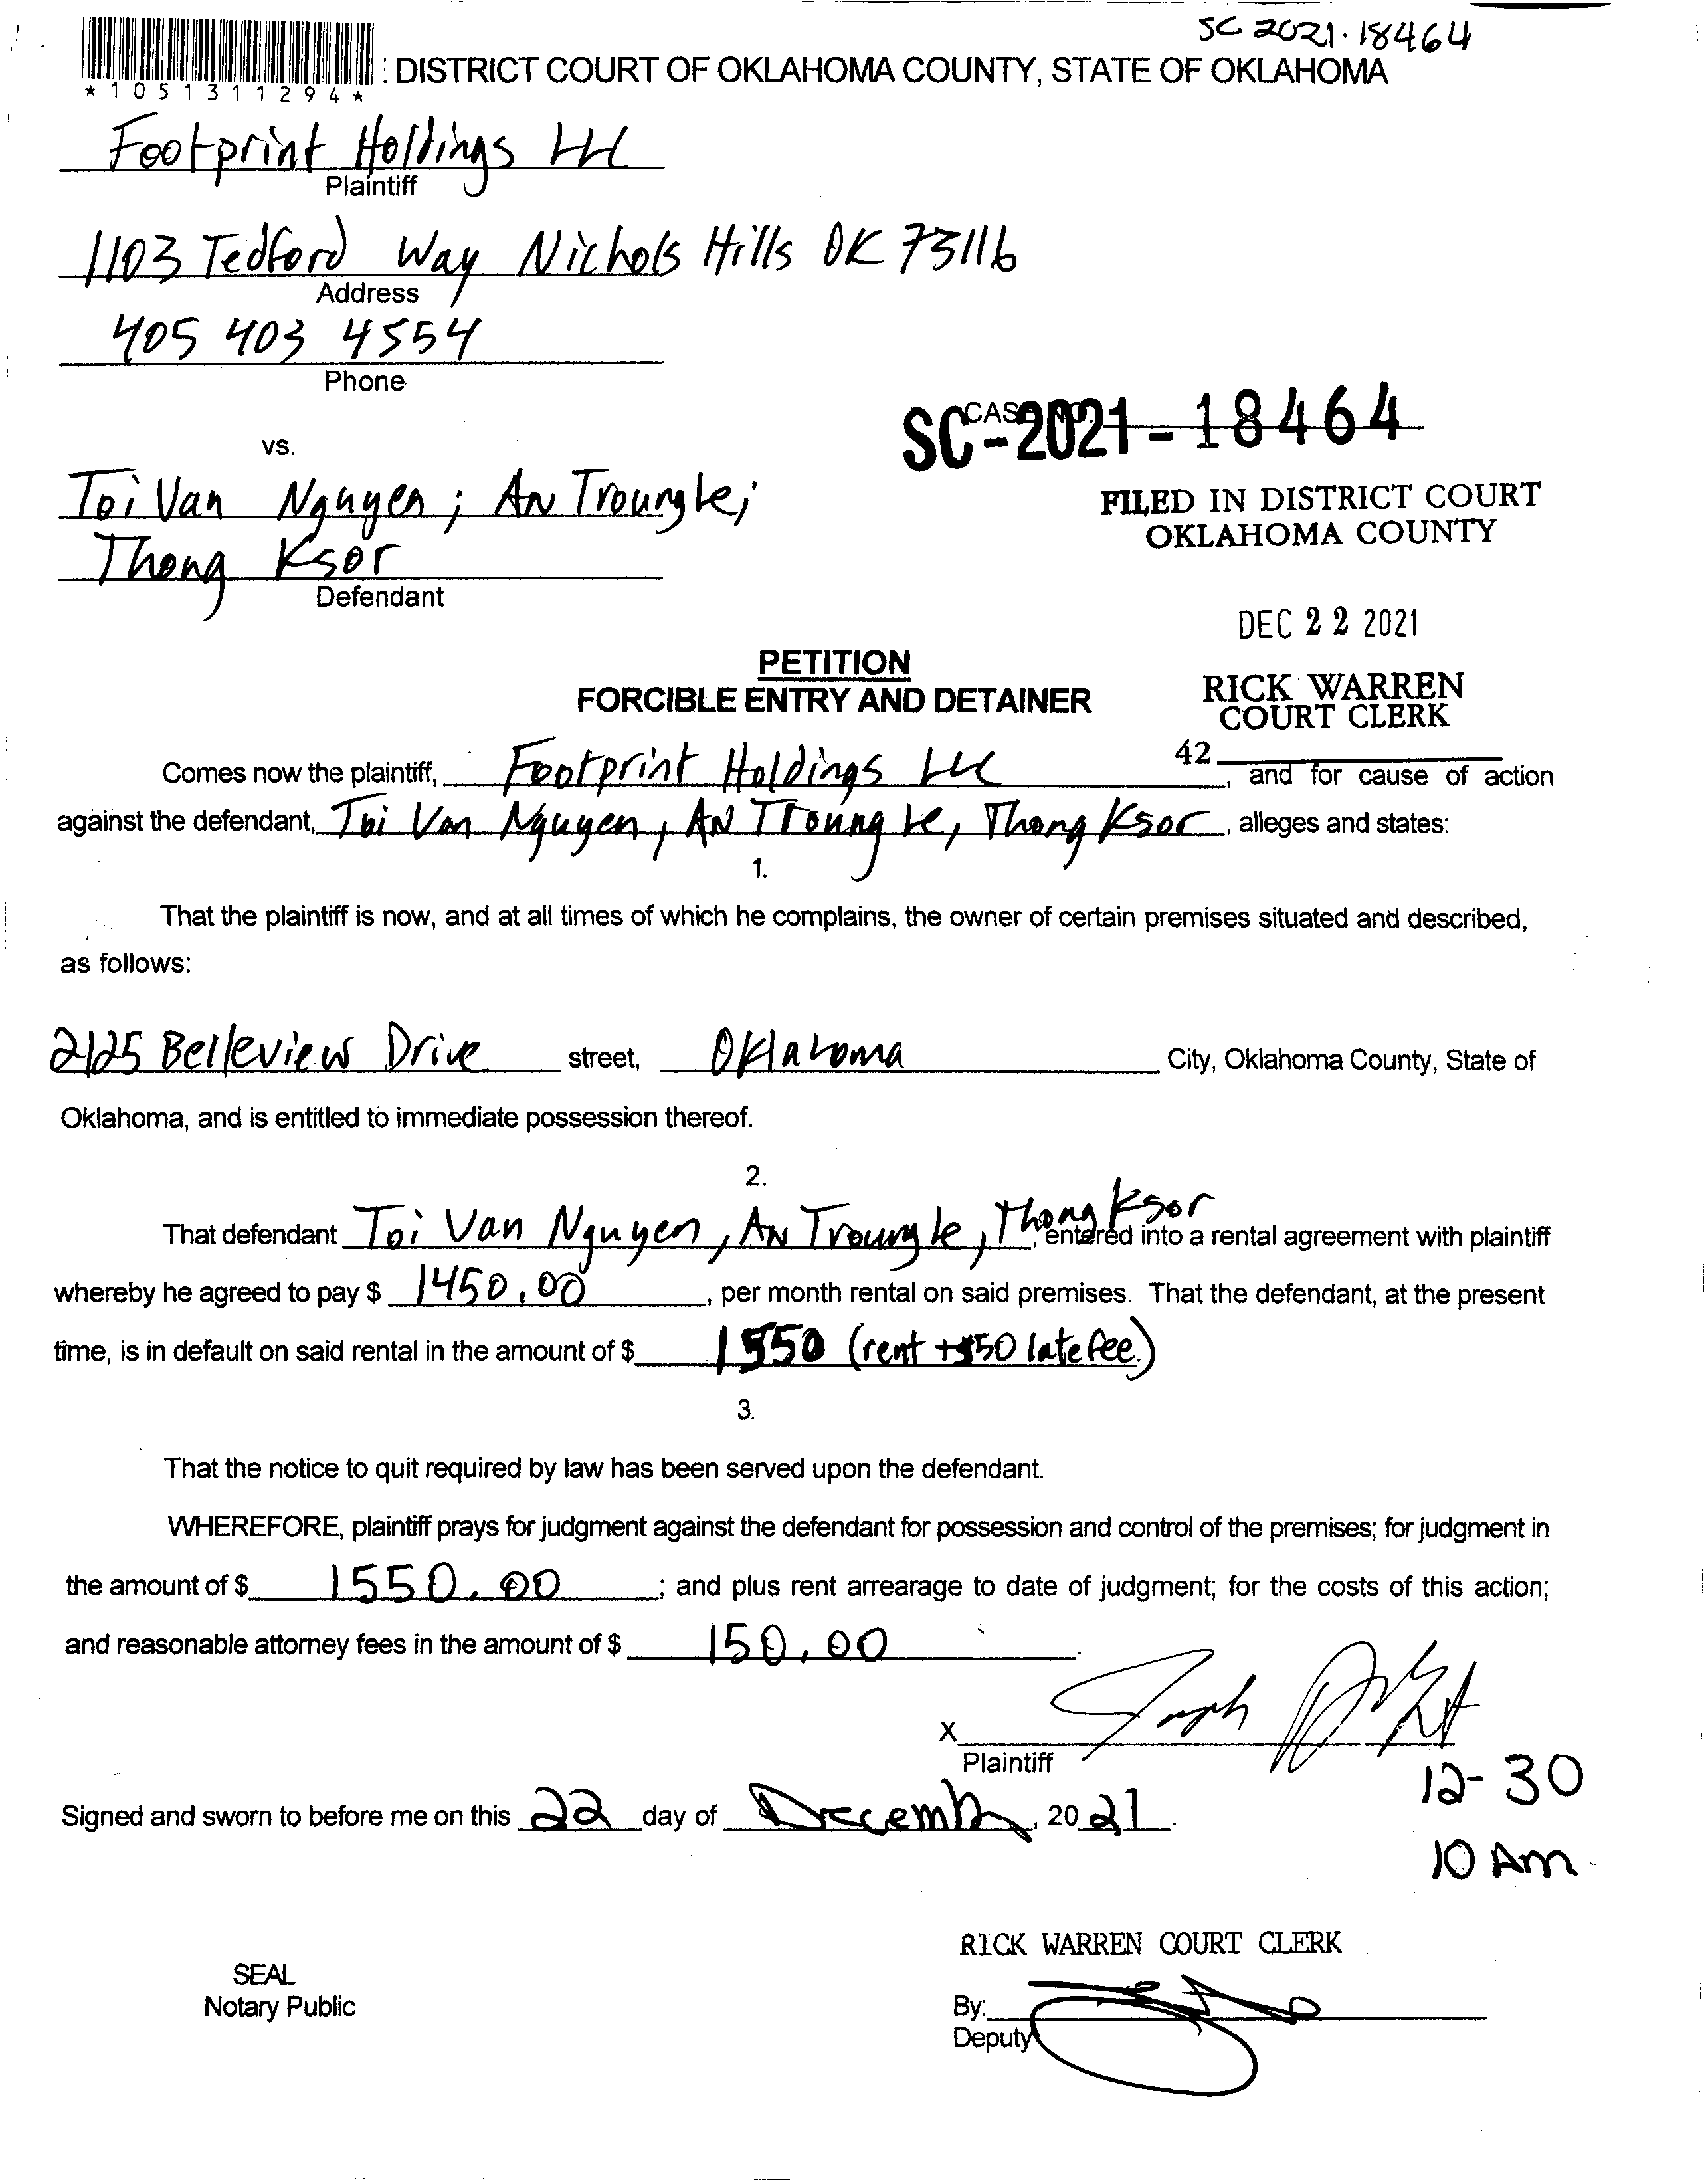 SC 2021-18464
: DISTRICT COURT OF OKLAHOMA COUNTY, STATE OF OKLAHOMA
*1051311294*
Footprint Holdings LLC
Plaintiff
1103 Tedford Way Nichols Hills OK 73116
Address
405 403 4554
Phone
SC-2021-18464
vs.
Toi Van Nguyen; AN Troung Le;
FILED IN DISTRICT COURT
OKLAHOMA COUNTY
Thong Ksor
Defendant
DEC 22 2021
PETITION
FORCIBLE ENTRY AND DETAINER
RICK WARREN
COURT CLERK
42
Comes now the plaintiff, Footprint Holdings LLC, and for cause of action
against the defendant, Toi Van Nguyen, AN Troung Le, Thong Ksor, alleges and states:
1.
That the plaintiff is now, and at all times of which he complains, the owner of certain premises situated and described,
as follows:
2125 Belleview Drive street, Oklahoma City, Oklahoma County, State of
Oklahoma, and is entitled to immediate possession thereof.
2.
That defendant Toi Van Nguyen, AN Troung le, Thong Ksor, entered into a rental agreement with plaintiff
whereby he agreed to pay $ 1450.00, per month rental on said premises. That the defendant, at the present
time, is in default on said rental in the amount of $ 1550 (rent + $50 late fee.)
3.
That the notice to quit required by law has been served upon the defendant.
WHEREFORE, plaintiff prays for judgment against the defendant for possession and control of the premises; for judgment in
the amount of $ 1550.00; and plus rent arrearage to date of judgment; for the costs of this action;
and reasonable attorney fees in the amount of $ 150.00.
X
Plaintiff
12-30
Signed and sworn to before me on this 22 day of December, 2021.
10 Am
RICK WARREN COURT CLERK
SEAL
Notary Public
By:
Deputy